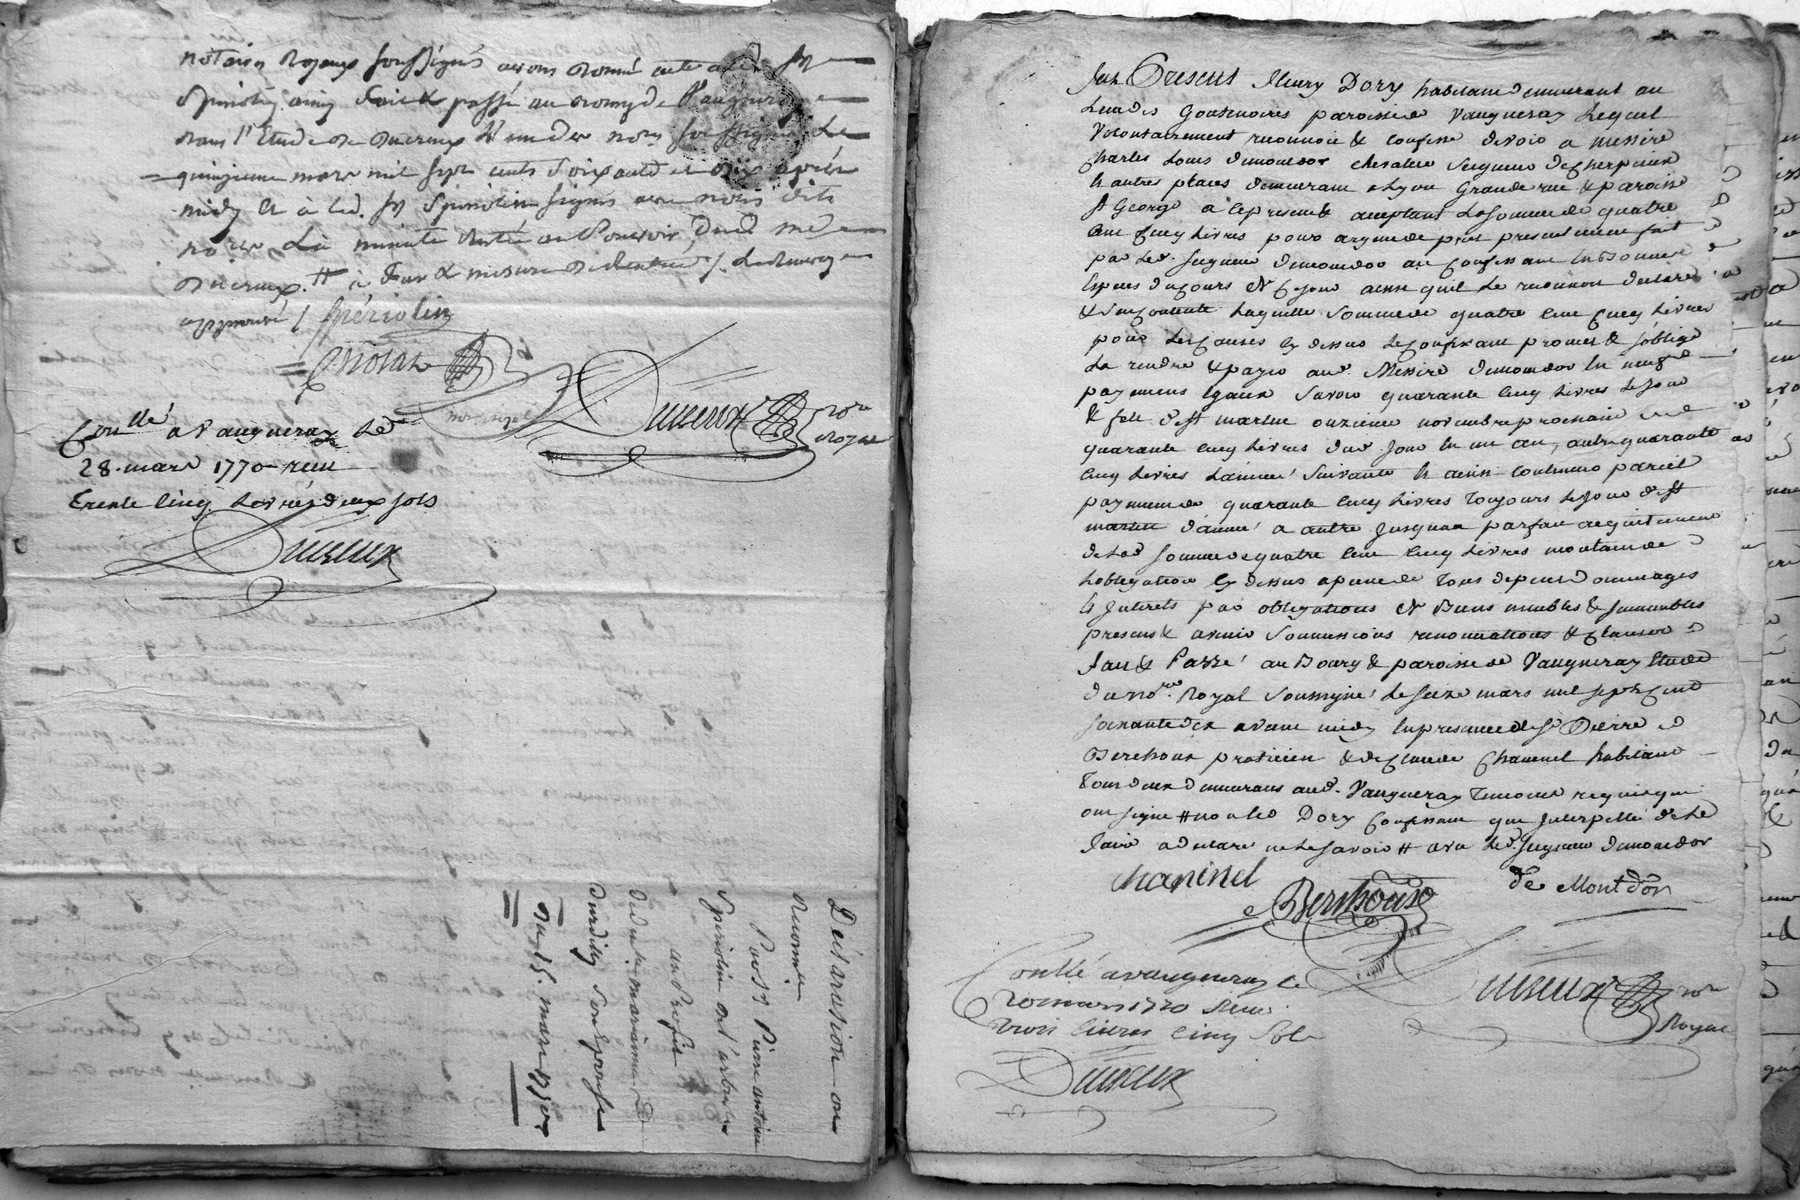 notaires Royaux soussignés avons donné acte aud. Sr
Spiriolin ainsi fait & passé au bourg de Vaugneray
dans l'Etude de Ducreux l'un des nors soussignés Le
quinzieme mars mil sept cents soixante et dix après
midy et à led. Sr Spiriolin signé avec nous dits
nores La minute Restée au Pouvoir Dud. me
Ducreux. #
approuvé / Spériolin
Ducreux nore
Royal
Conllé a Vaugneray Le
28. mars 1770 - reçu
trente cinq Livres deux sols
Ducreux
Déclaration ou
Par Sr Pierre antoine
Spiriolin
au Profit
son Epouse
Du 15. mars 1770
Fut Present fleury Dory habitant demeurant au
Lieu des Goutnoires paroisse de Vaugneray Lequel
Volontairement reconnoit & confesse devoir a messire
Charles Louis demondor chevalier Seigneur de Cherpieux
& autres places demeurant a Lyon Grande rue & paroisse
St George a ce present & acceptant La somme de quatre
cent cinq Livres pour argent de pret presentement fait
par led. Seigneur demondor au Confessant en bonne
Especes du Cours de ce jour ainsi quil Le reconnoit declare
& s'en contente Laquelle somme de quatre cent cinq Livres
pour les Causes cy dessus Le Confessant promet & s'oblige
La rendre & payer aud. Messire demondor en neuf
payemens Egaux Savoir quarante cinq Livres le jour
& fete de St martin onzieme novembre prochain
quarante cinq Livres dud. jour en un an, autre quarante
cinq Livres L'année suivante & ainsi continuer pareil
payement de quarante cinq Livres toujours Le jour de St
martin d'année a autre jusquau parfait acquittement
de Lad. somme de quatre cent cinq Livres montant de
L'obligation cy dessus a peine de tous depens dommages
& Interets par obligations de Biens meubles & immeubles
presens & avenir soumissions renonciations & clauses
Fait & Passé au Bourg & paroisse de Vaugneray Etude
du nore. Royal soussigné Le seize mars mil sept Cent
soixante dix avant midy En presence de Sr Pierre
Berthoux praticien & de Claude Chaninel habitant
tous deux demeurans aud. Vaugneray temoins requis qui
ont signé # non led Dory Confessant qui Interpellé de Le
faire a declaré ne Le savoir # avec Led. Seigneur demondor
chaninel
Berthoux
de Montdor
Ducreux nore
Royal
Conllé a vaugneray le
20 mars 1770 Reçu
trois livres cinq sols
Ducreux